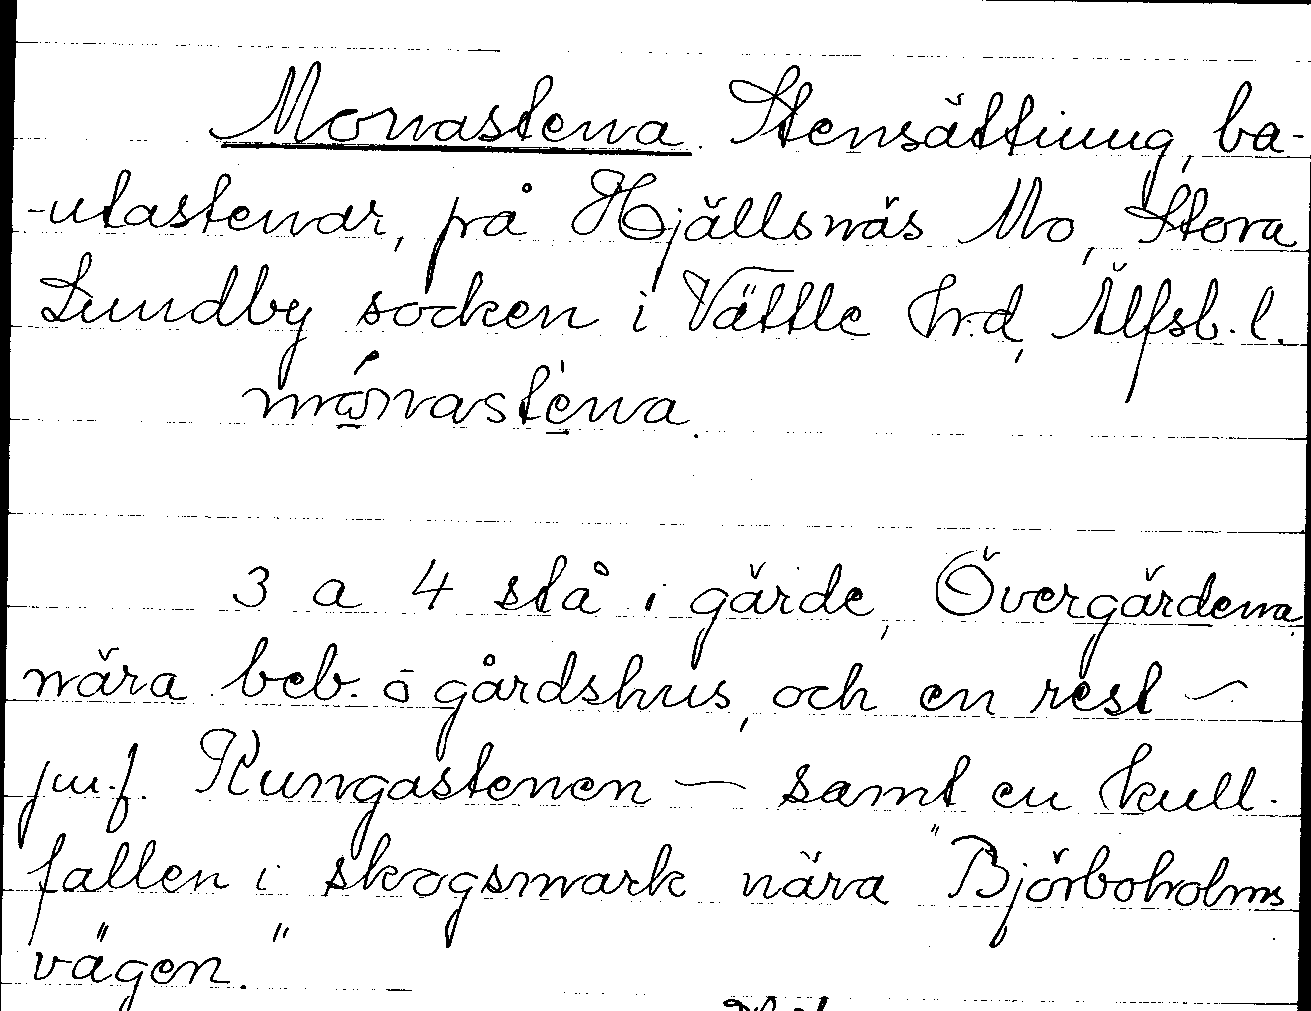 Monastena. Stensättning, ba-
-utastenar, på Hjällsnäs Mo, Stora
Lundby socken i Vättle hrd, Älfsb. l.
mónastèna.
3 a 4 stå i gärde, Övergärdena,
nära beb. o gårdshus, och en rest —
jmf. Kungastenen — samt en kull-
fallen i skogsmark nära "Björboholms
vägen."